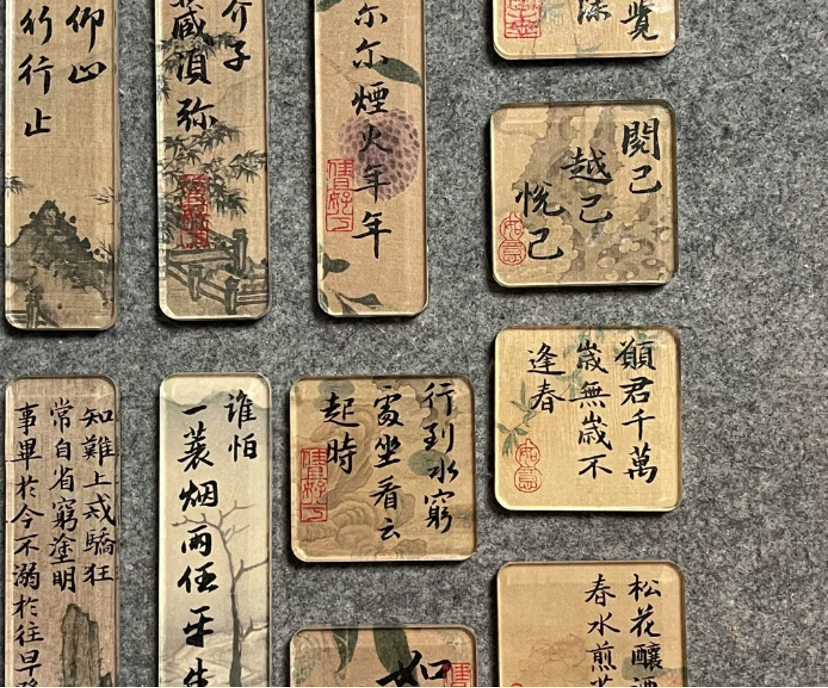 仰山
行行止
介子
藏須弥
尔尔煙火年年
覽
閱己
越己
悦己
如意
知難上戒驕狂
常自省窮塗明
事畢於今不溺於往早
谁怕
一蓑烟雨任平生
行到水窮
處坐看云
起時
願君千萬
歲無歲不
逢春
如意
如
松花釀酒
春水煎茶